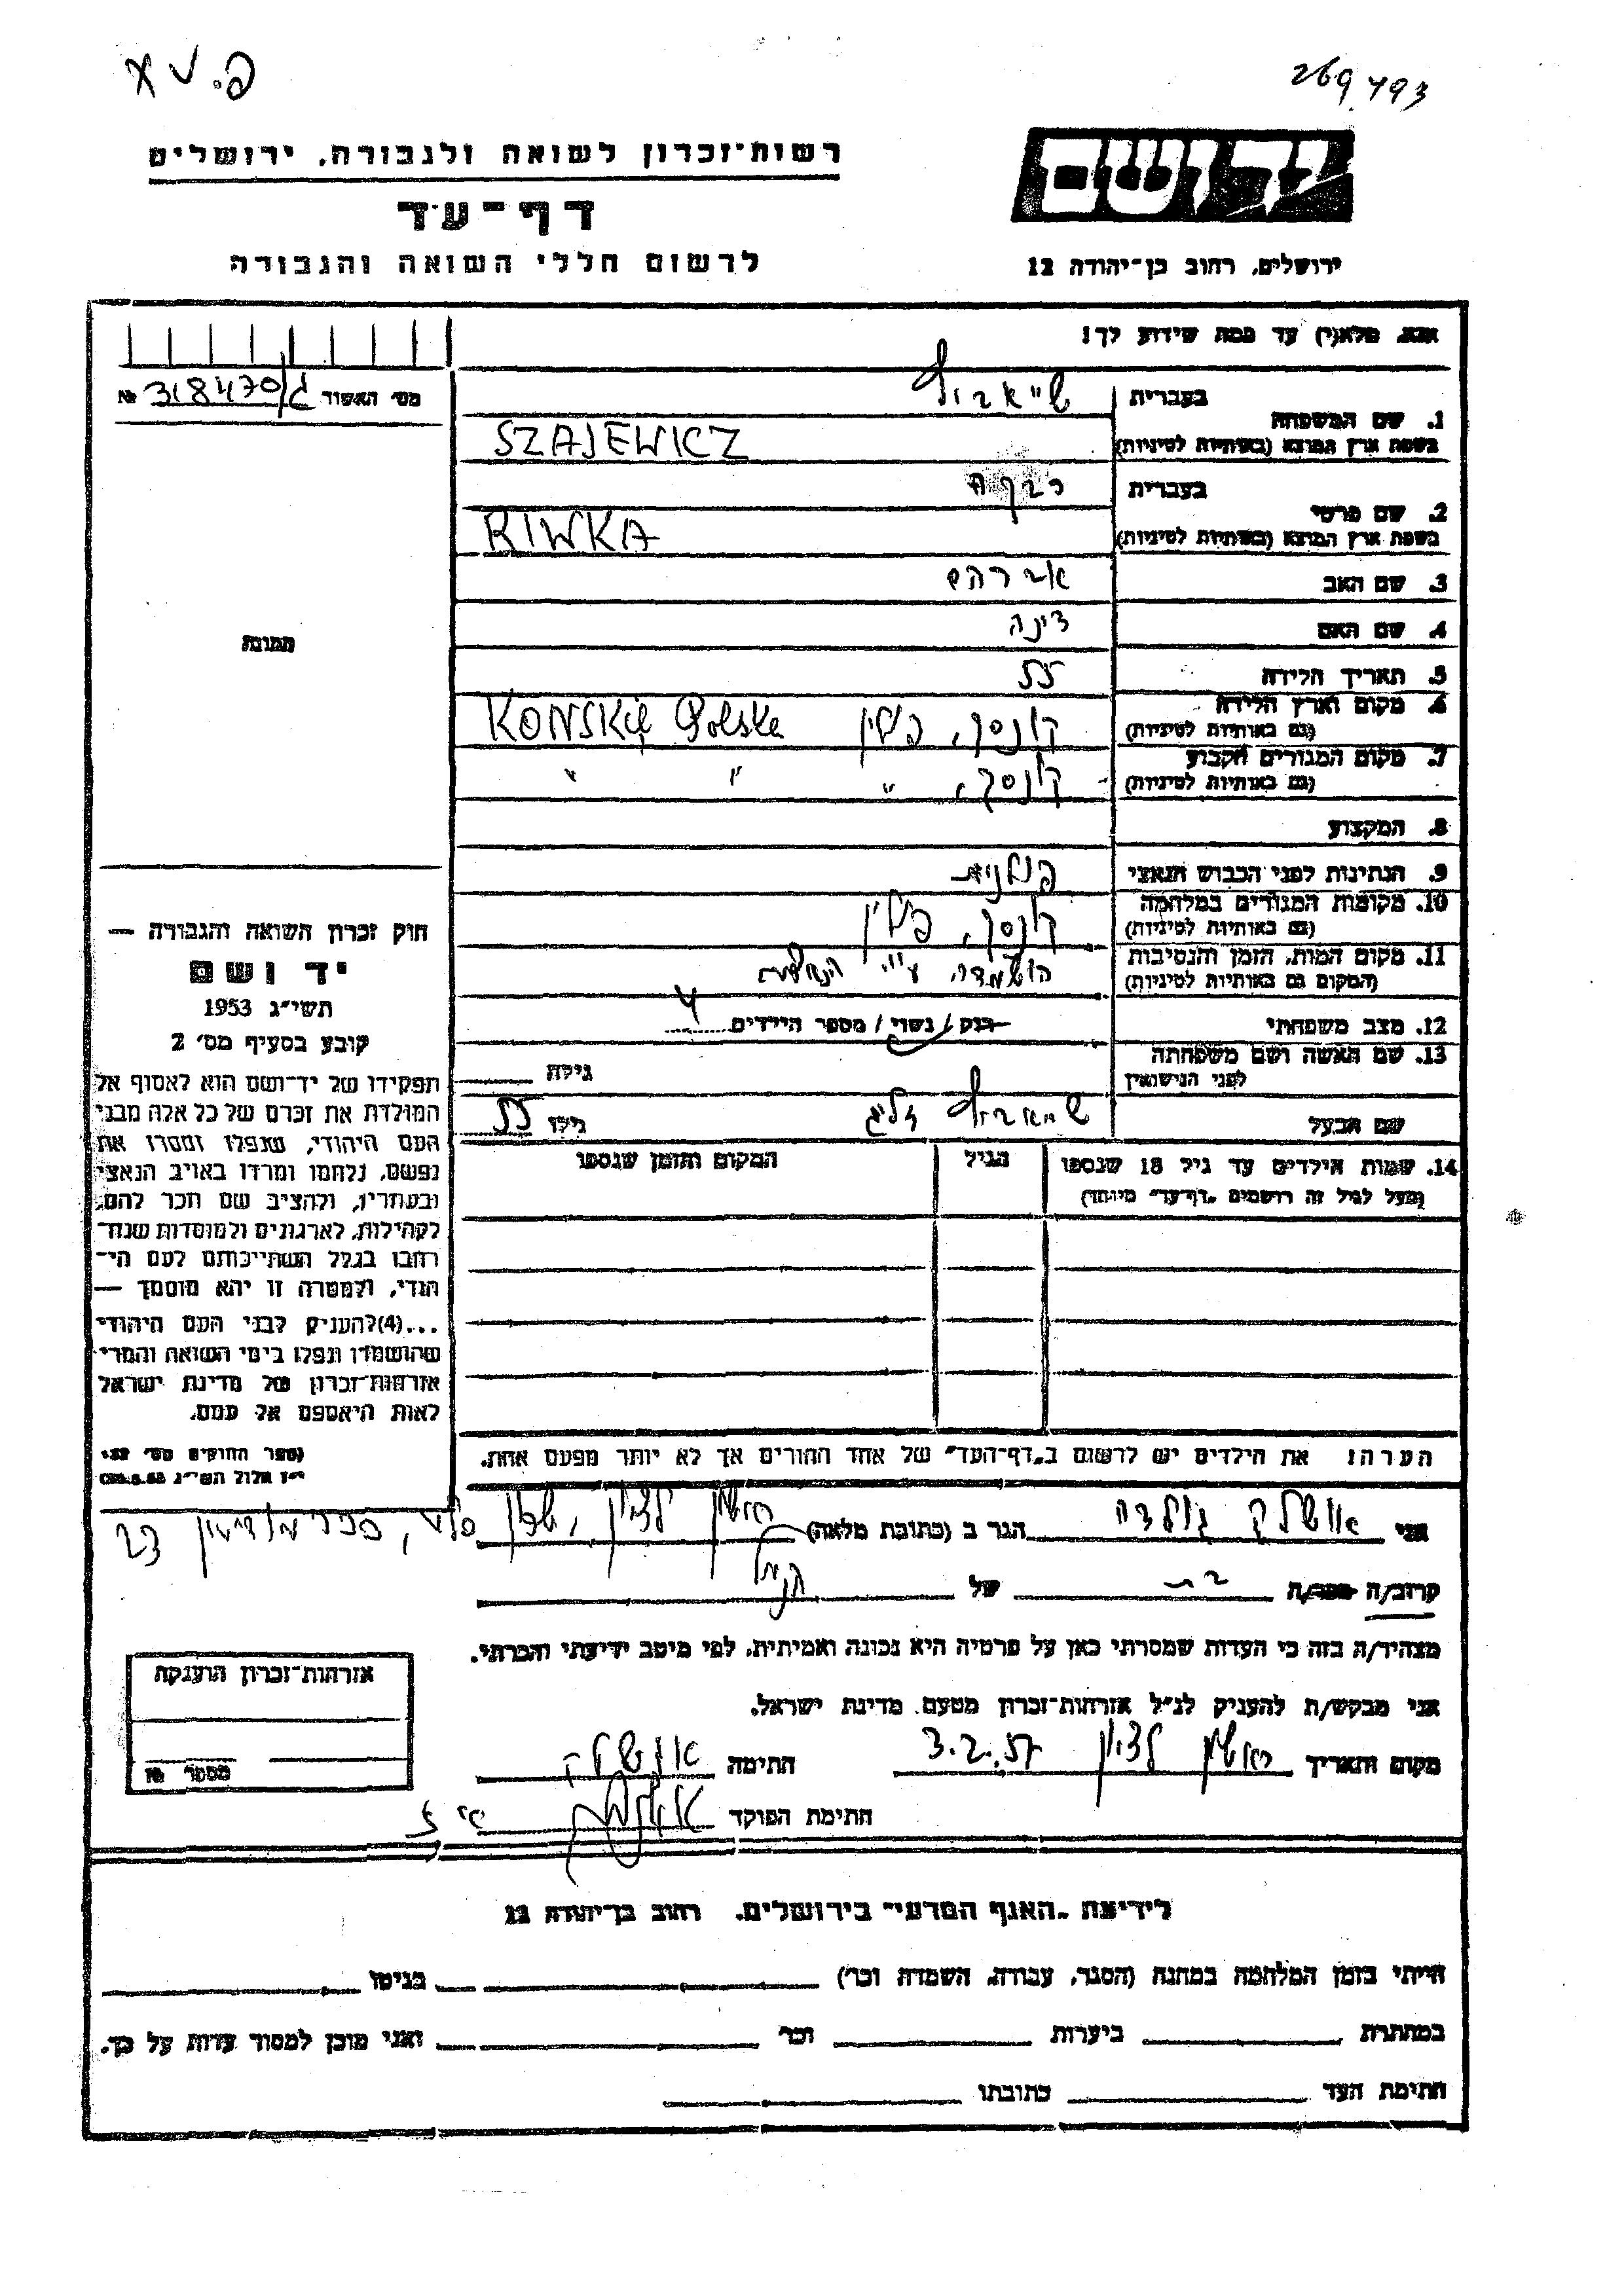 פ. ט א
269793
רשות־זכרון לשואה ולגבורה, ירושלים
יד ושם
דף־עד
לרשום חללי השואה והגבורה
ירושלים, רחוב בן־יהודה 12
אנא, מלא(י) עד כמה שידוע לך!
מס׳ האשור ג/318470 №
1. שם המשפחה
בעברית
בשפת ארץ המוצא (באותיות לטיניות)
SZAJEWICZ
2. שם פרטי
בעברית רבקה
בשפת ארץ המוצא (באותיות לטיניות)
RIWKA
3. שם האב אברהם
4. שם האם דינה
5. תאריך הלידה 55
6. מקום וארץ הלידה
(גם באותיות לטיניות)
קונסק, פולין KONSKIE Polska
7. מקום המגורים הקבוע
(גם באותיות לטיניות)
קונסק, " " "
8. המקצוע
9. הנתינות לפני הכבוש הנאצי פולנית
10. מקומות המגורים במלחמה
(גם באותיות לטיניות)
קונסק, פולין
11. מקום המות, הזמן והנסיבות
(המקום גם באותיות לטיניות)
הושמדה ע"י
12. מצב משפחתי רווק / נשוי / מספר הילדים 4
13. שם האשה ושם משפחתה
לפני הנישואין
גילה
שם הבעל
גילו 55
14. שמות הילדים עד גיל 18 שנספו
(מעל לגיל זה רושמים „דף־עד" מיוחד)
הגיל
המקום והזמן שנספו
הערה: את הילדים יש לרשום ב„דף־העד" של אחד ההורים אך לא יותר מפעם אחת.
תמונה
חוק זכרון השואה והגבורה —
יד ושם
תשי"ג 1953
קובע בסעיף מס׳ 2
תפקידו של יד־ושם הוא לאסוף אל
המולדת את זכרם של כל אלה מבני
העם היהודי, שנפלו ומסרו את
נפשם, נלחמו ומרדו באויב הנאצי
ובעוזריו, ולהציב שם וזכר להם,
לקהילות, לארגונים ולמוסדות שנח־
רבו בגלל השתייכותם לעם הי־
הודי, ולמטרה זו יהא מוסמך —
...(4)להעניק לבני העם היהודי
שהושמדו ונפלו בימי השואה והמרי
אזרחות־זכרון של מדינת ישראל
לאות היאספם אל עמם.
(ספר החוקים מס׳ 132,
י"ז אלול תשי"ג 28.8.53)
אני גולדה הגר ב (כתובת מלאה) ראשון לציון, שכון 23
קרוב/ה מכר/ה בת של הנ"ל
מצהיר/ה בזה כי העדות שמסרתי כאן על פרטיה היא נכונה ואמיתית, לפי מיטב ידיעתי והכרתי.
אני מבקש/ת להעניק לנ"ל אזרחות־זכרון מטעם מדינת ישראל.
מקום ותאריך ראשון לציון 3.2.57 חתימה
חתימת הפוקד
אזרחות־זכרון הוענקה
מספר №
לידיעת „האגף המדעי" בירושלים, רחוב בן־יהודה 12
הייתי בזמן המלחמה במחנה (הסגר, עבודה, השמדה וכר׳) בגיטו
במחתרת ביערות וכר׳ ואני מוכן למסור עדות על כך.
חתימת העד כתובתו